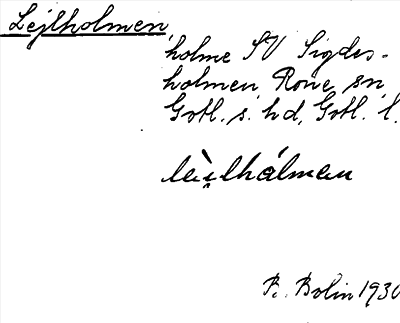 Lejlholmen,
holme SV Sigdes-
holmen, Rone sn,
Gotl. s. hd, Gotl. l.
R. Bolin 1930